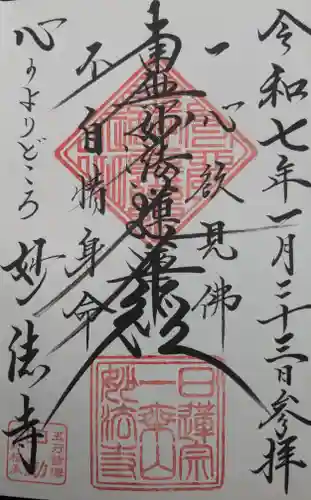 令和七年一月二十三日参拝
一心欲見佛
南無妙法蓮華経
不自惜身命
心のよりどころ
妙法寺
日蓮宗
一乗山
妙法寺